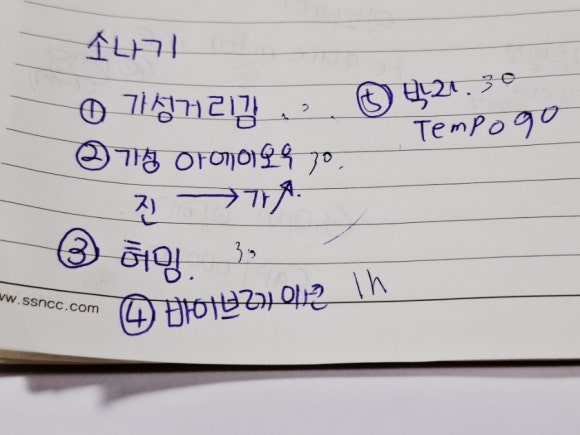 소나기
① 가성거리감
② 가성 아에이오우 30.
진 → 가↗.
③ 허밍. 30
④ 바이브레이션 1h
⑤ 박자. 30
Tempo 90
www.ssncc.com